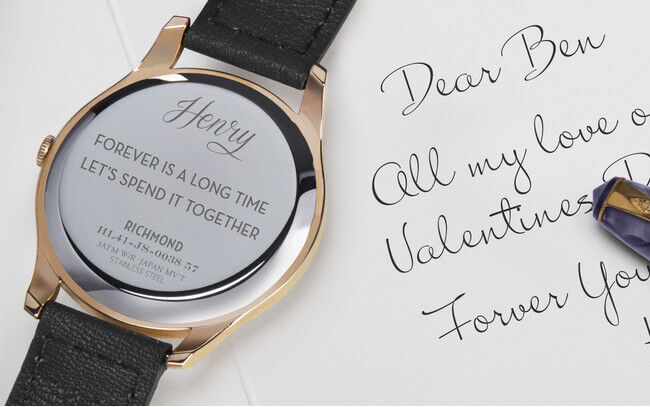 Henry
FOREVER IS A LONG TIME
LET'S SPEND IT TOGETHER
RICHMOND
HL41-JS-0038 57
3ATM W/R JAPAN MV'T
STAINLESS STEEL
Dear Ben
All my love o
Valentines D
Forver You